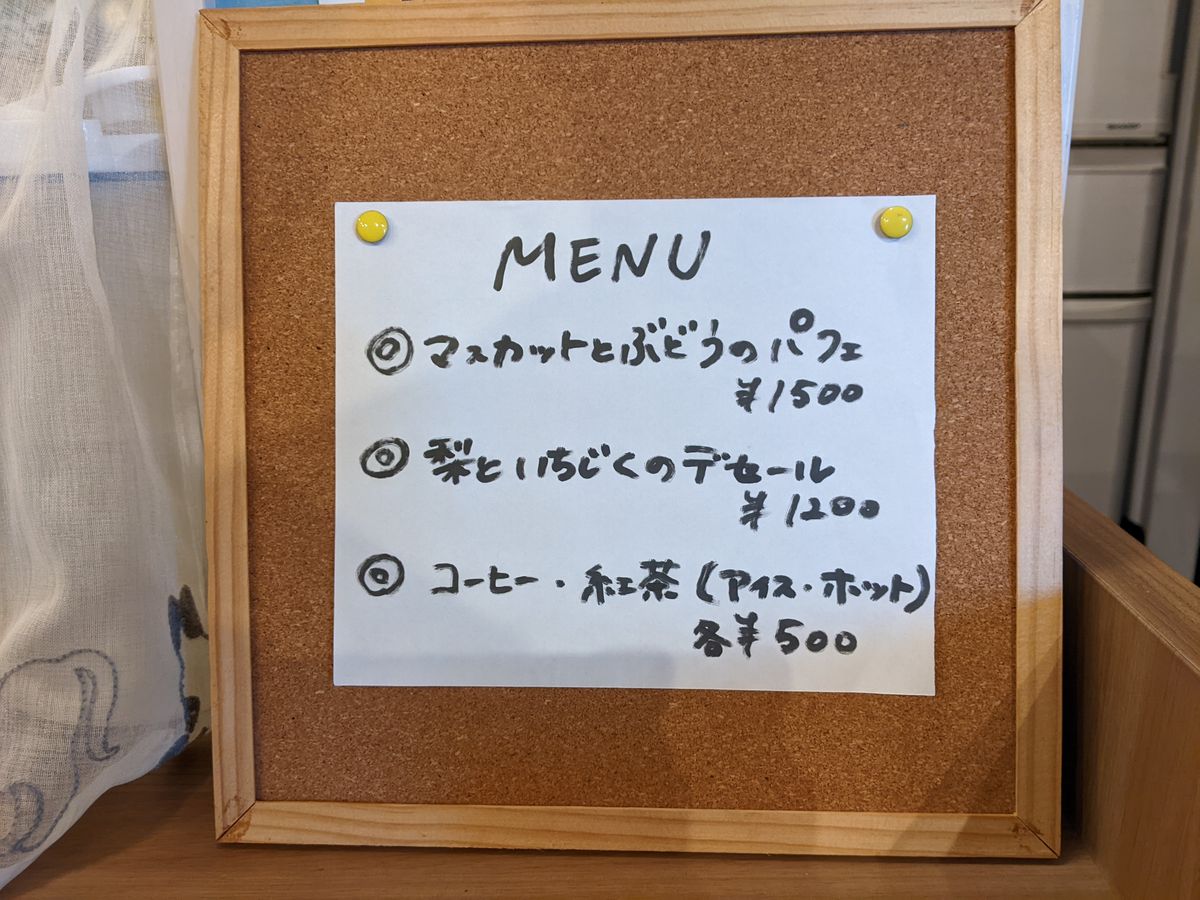 MENU
◎マスカットとぶどうのパフェ
¥1500
◎梨といちじくのデセール
¥1200
◎コーヒー・紅茶(アイス・ホット)
各¥500